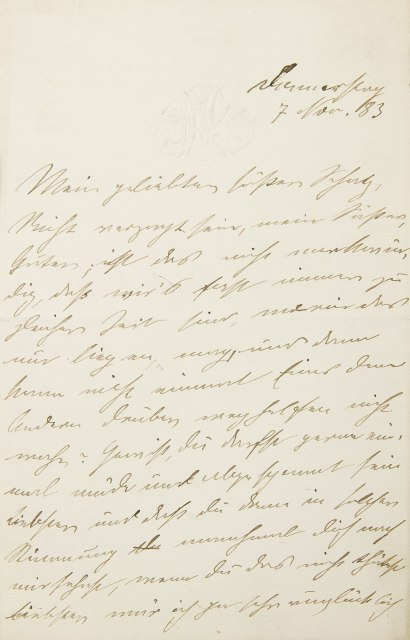 Donnerstag
7 Nov. 83
Mein geliebter süßer Schatz,
Nicht verzagt sein, mein Süßer,
Guter, ist das nicht merkwür-
dig, daß wir's fast immer zu
gleicher Zeit sind,
nur liegen mag, und dann
kann nicht einmal Eins dem
Andern drüber weghelfen nicht
wahr? Gewiß, du darfst gerne ein-
mal müde und abgespannt sein
Liebster und daß du dann in solcher
Stimmung manchmal dich nach
mir sehnst, wenn du das nicht thätest
Liebster wär ich ja sehr unglücklich